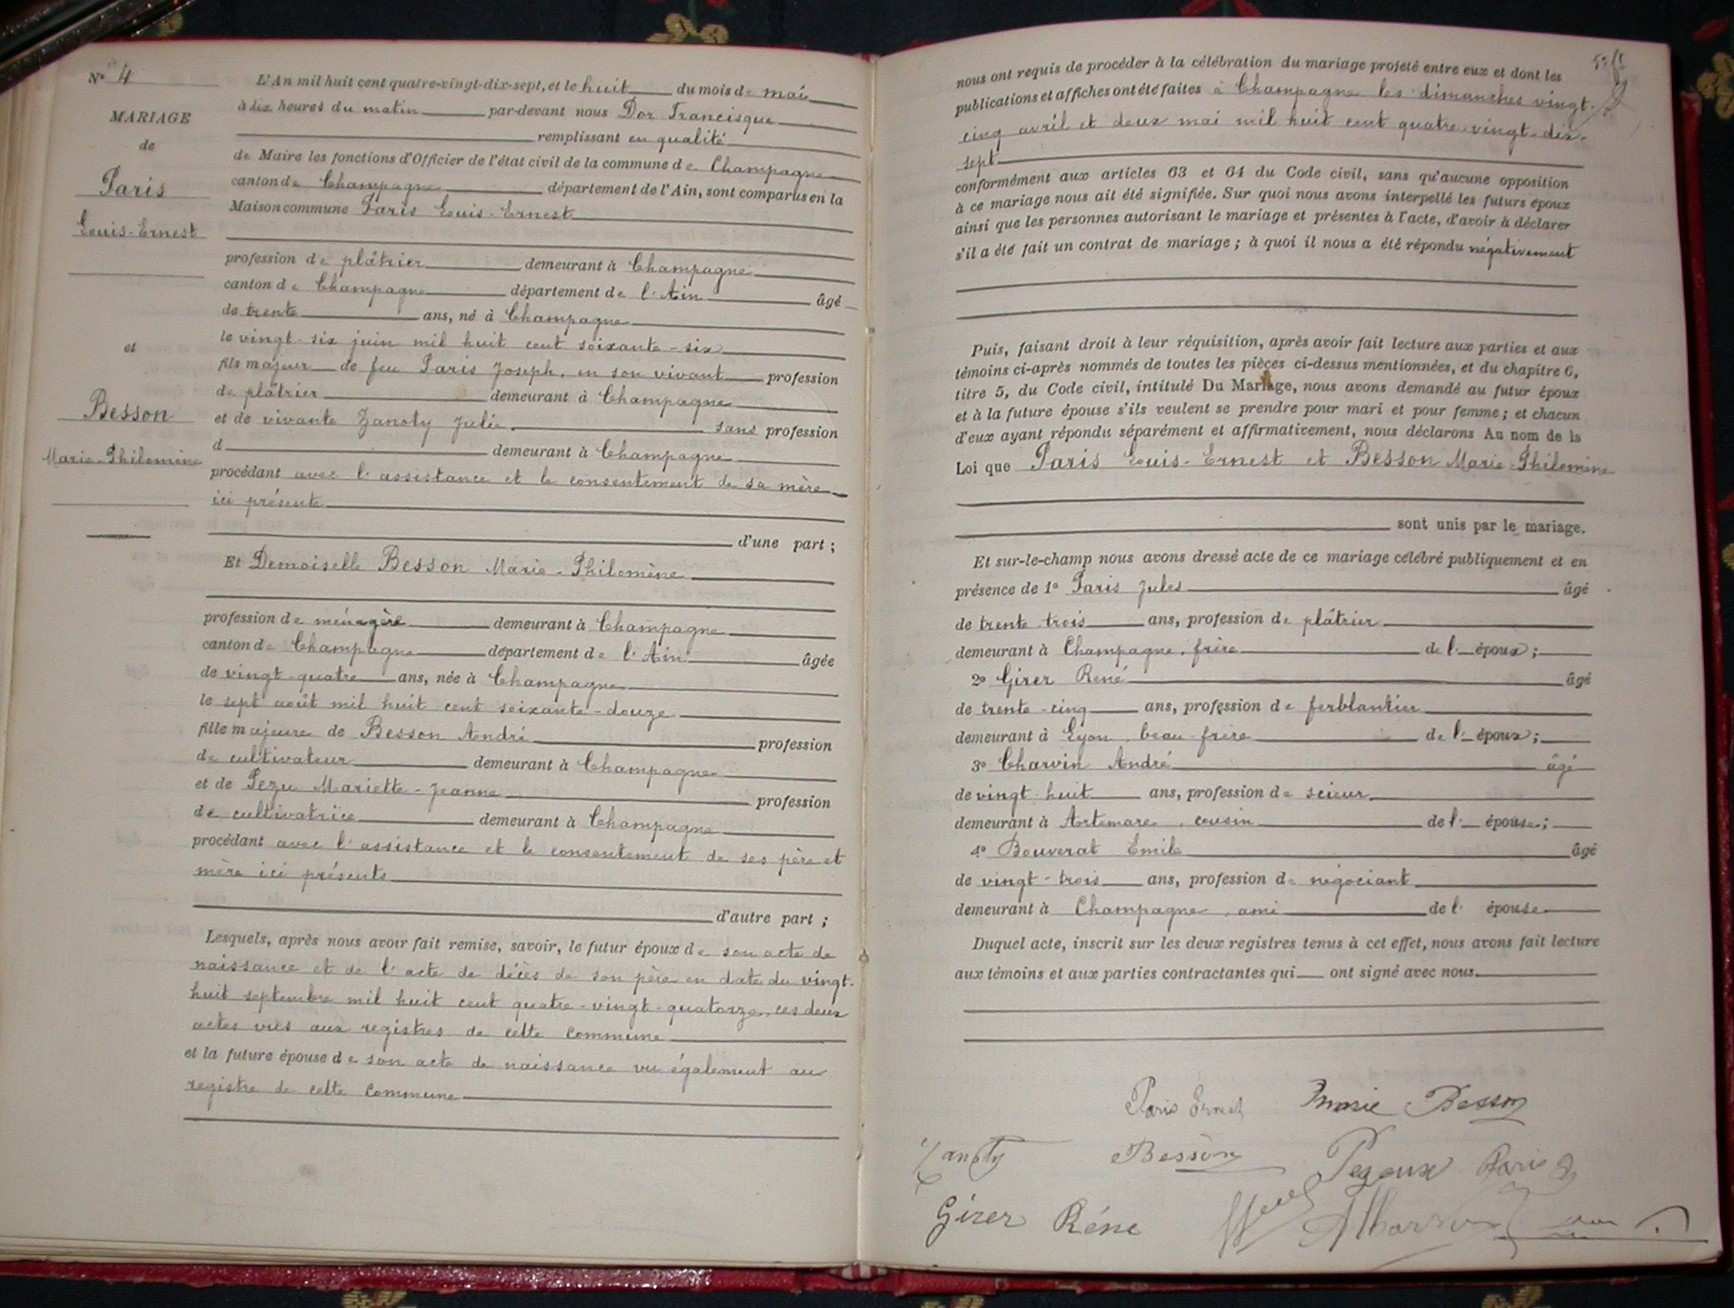 N° 4
MARIAGE
de
Paris
Louis-Ernest
et
Besson
Marie-Philomène
L'An mil huit cent quatre-vingt-dix-sept, et le huit du mois de mai
à dix heures du matin par-devant nous Dor Francisque
remplissant en qualité
de Maire les fonctions d'Officier de l'état civil de la commune de Champagne
canton de Champagne département de l'Ain, sont comparus en la
Maison commune Paris Louis-Ernest
profession de plâtrier demeurant à Champagne
canton de Champagne département de l'Ain âgé
de trente ans, né à Champagne
le vingt-six juin mil huit cent soixante-six
fils majeur de feu Paris Joseph, en son vivant profession
de plâtrier demeurant à Champagne
et de vivante Zanoty Julie sans profession
d demeurant à Champagne
procédant avec l'assistance et le consentement de sa mère
ici présente
d'une part ;
Et Demoiselle Besson Marie-Philomène
profession de ménagère demeurant à Champagne
canton de Champagne département de l'Ain âgée
de vingt-quatre ans, née à Champagne
le sept août mil huit cent soixante-douze
fille majeure de Besson André profession
de cultivateur demeurant à Champagne
et de Pezu Mariette-Jeanne profession
de cultivatrice demeurant à Champagne
procédant avec l'assistance et le consentement de ses père et
mère ici présents
d'autre part ;
Lesquels, après nous avoir fait remise, savoir, le futur époux de son acte de
naissance et de l'acte de décès de son père en date du vingt-
huit septembre mil huit cent quatre-vingt-quatorze, ces deux
actes vus aux registres de cette commune
et la future épouse de son acte de naissance vu également au
registre de cette commune
nous ont requis de procéder à la célébration du mariage projeté entre eux et dont les
publications et affiches ont été faites à Champagne les dimanches vingt-
cinq avril et deux mai mil huit cent quatre-vingt-dix-
sept
conformément aux articles 63 et 64 du Code civil, sans qu'aucune opposition
à ce mariage nous ait été signifiée. Sur quoi nous avons interpellé les futurs époux
ainsi que les personnes autorisant le mariage et présentes à l'acte, d'avoir à déclarer
s'il a été fait un contrat de mariage ; à quoi il nous a été répondu négativement
Puis, faisant droit à leur réquisition, après avoir fait lecture aux parties et aux
témoins ci-après nommés de toutes les pièces ci-dessus mentionnées, et du chapitre 6,
titre 5, du Code civil, intitulé Du Mariage, nous avons demandé au futur époux
et à la future épouse s'ils veulent se prendre pour mari et pour femme ; et chacun
d'eux ayant répondu séparément et affirmativement, nous déclarons Au nom de la
Loi que Paris Louis-Ernest et Besson Marie-Philomène
sont unis par le mariage.
Et sur-le-champ nous avons dressé acte de ce mariage célébré publiquement et en
présence de 1° Paris Jules âgé
de trente-trois ans, profession de plâtrier
demeurant à Champagne, frère de l' époux ;
2° Girer René âgé
de trente-cinq ans, profession de ferblantier
demeurant à Lyon, beau-frère de l' époux ;
3° Charvin André âgé
de vingt-huit ans, profession de scieur
demeurant à Artemare, cousin de l' épouse ;
4° Bouverat Emile âgé
de vingt-trois ans, profession de négociant
demeurant à Champagne, ami de l' épouse
Duquel acte, inscrit sur les deux registres tenus à cet effet, nous avons fait lecture
aux témoins et aux parties contractantes qui ont signé avec nous.
Paris Ernest Marie Besson
Zanoty Besson Pezeux Paris J
Girer Réne